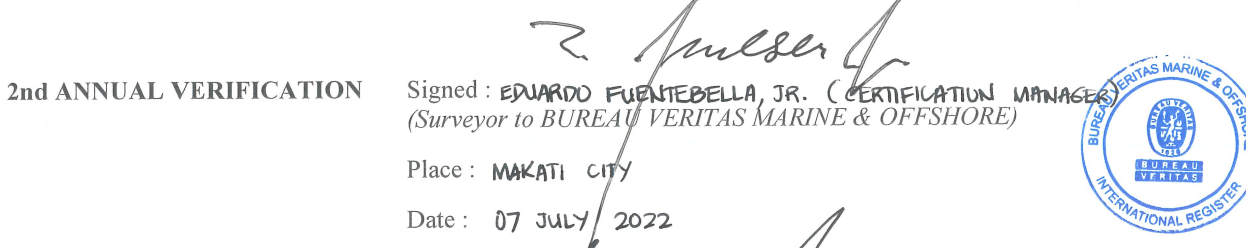 2nd ANNUAL VERIFICATION
Signed : EDUARDO FUENTEBELLA, JR. (CERTIFICATION MANAGER)
(Surveyor to BUREAU VERITAS MARINE & OFFSHORE)
Place : MAKATI CITY
Date : 07 JULY 2022
BUREAU VERITAS MARINE & OFFSHORE
BUREAU VERITAS
1828
BUREAU
VERITAS
INTERNATIONAL REGISTER